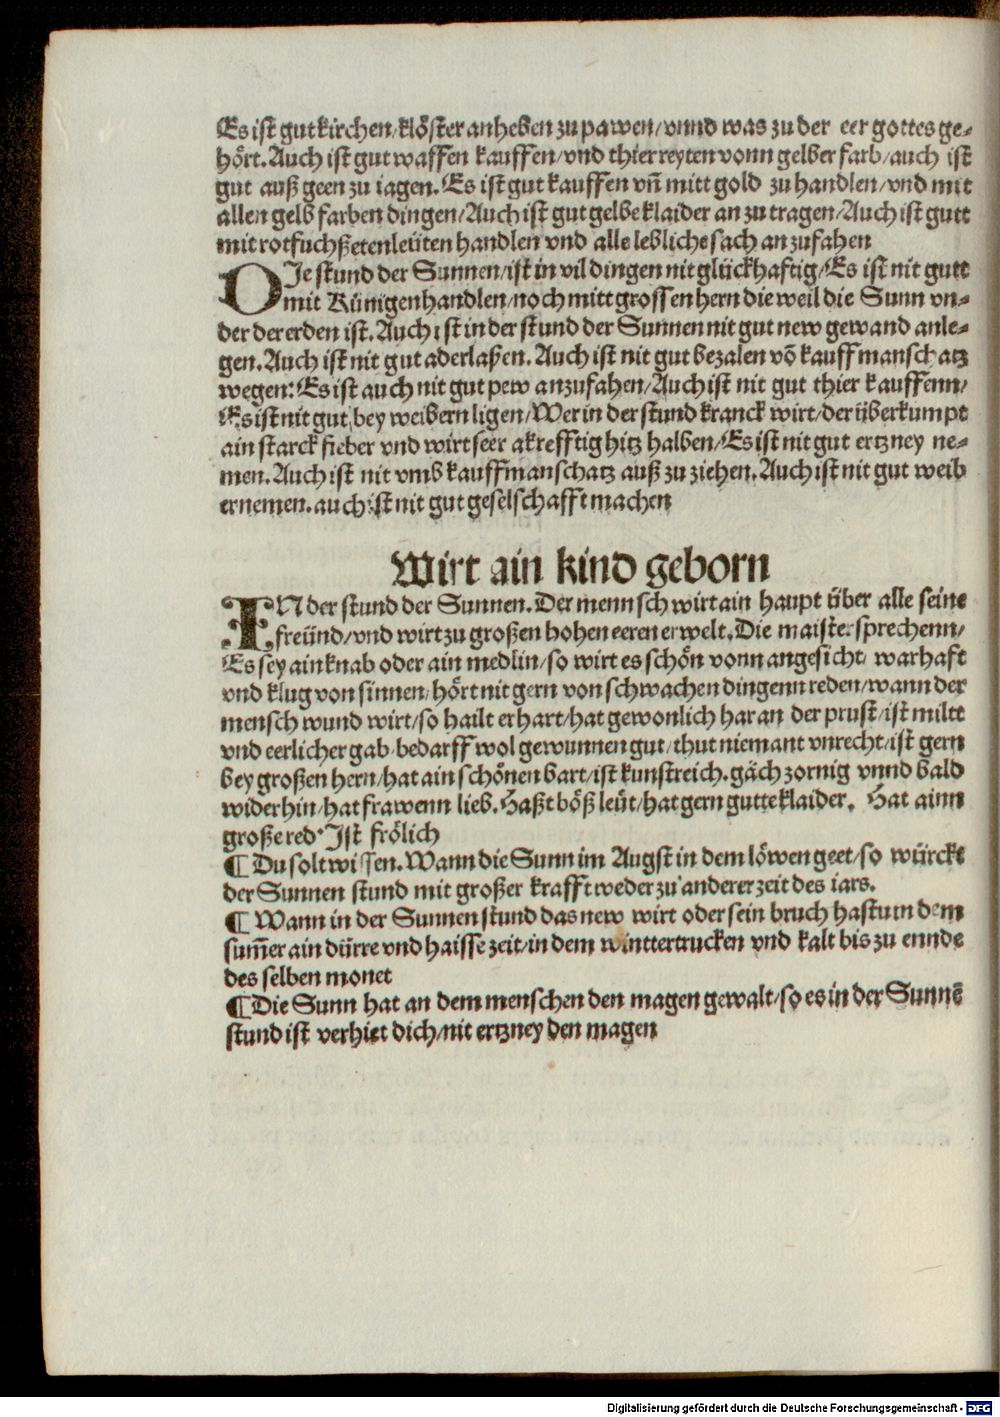 Es ist gut kirchen/klöster anheben zu pawen/vnnd was zu der eer gottes ge-
hört. Auch ist gut waffen kauffen/vnd thier reyten vonn gelber farb/auch ist
gut auß geen zu iagen. Es ist gut kauffen vñ mitt gold zu handlen/vnd mit
allen gelb farben dingen/Auch ist gut gelbe klaider an zu tragen/Auch ist gutt
mit rotfuchßeten leüten handlen vnd alle lebliche sach an zufahen
DJe stund der Sunnen/ist in vil dingen nit glückhafftig/Es ist nit gutt
mit Künigen handlen/noch mitt grossen hern die weil die Sunn vn-
der der erden ist. Auch ist in der stund der Sunnen nit gut new gewand anle-
gen. Auch ist nit gut aderlaßen. Auch ist nit gut bezalen võ kauffmanschatz
wegen: Es ist auch nit gut pew anzufahen/Auch ist nit gut thier kauffenn/
Es ist nit gut bey weibern ligen/Wer in der stund kranck wirt/der überkumpt
ain starck fieber vnd wirt seer akrefftig hitz halben/Es ist nit gut ertzney ne-
men. Auch ist nit vmb kauffmanschatz auß zu ziehen. Auch ist nit gut weib
er nemen. auch ist nit gut geselschafft machen
Wirt ain kind geborn
IN der stund der Sunnen. Der mennsch wirt ain haupt über alle seine
freünd/vnd wirt zu großen hohen eeren erwelt. Die maister sprechenn/
Es sey ain knab oder ain medlin/so wirt es schön vonn angesicht/ warhaft
vnd klug von sinnen/hört nit gern von schwachen dingenn reden/wann der
mensch wund wirt/so hailt er hart/hat gewonlich har an der prust/ist miltt
vnd eerlicher gab/bedarff wol gewunnen gut/thut niemant vnrecht/ist gern
bey großen hern/hat ain schönen bart/ist kunstreich. gäch zornig vnnd bald
widerhin/hat frawenn lieb. Haßt böß leüt/hat gern gutte klaider. Hat ainn
große red. Jst frölich
¶ Du solt wissen. Wann die Sunn im Augst in dem löwen geet/so würckt
der Sunnen stund mit großer krafft weder zu anderer zeit des iars.
¶ Wann in der Sunnen stund das new wirt oder sein bruch hastu in dem
sum̃er ain dürre vnd haisse zeit/in dem winttertrucken vnd kalt bis zu ennde
des selben monet
¶ Die Sunn hat an dem menschen den magen gewalt/so es in der Sunnẽ
stund ist verhiet dich/nit ertzney den magen
Digitalisierung gefördert durch die Deutsche Forschungsgemeinschaft - DFG